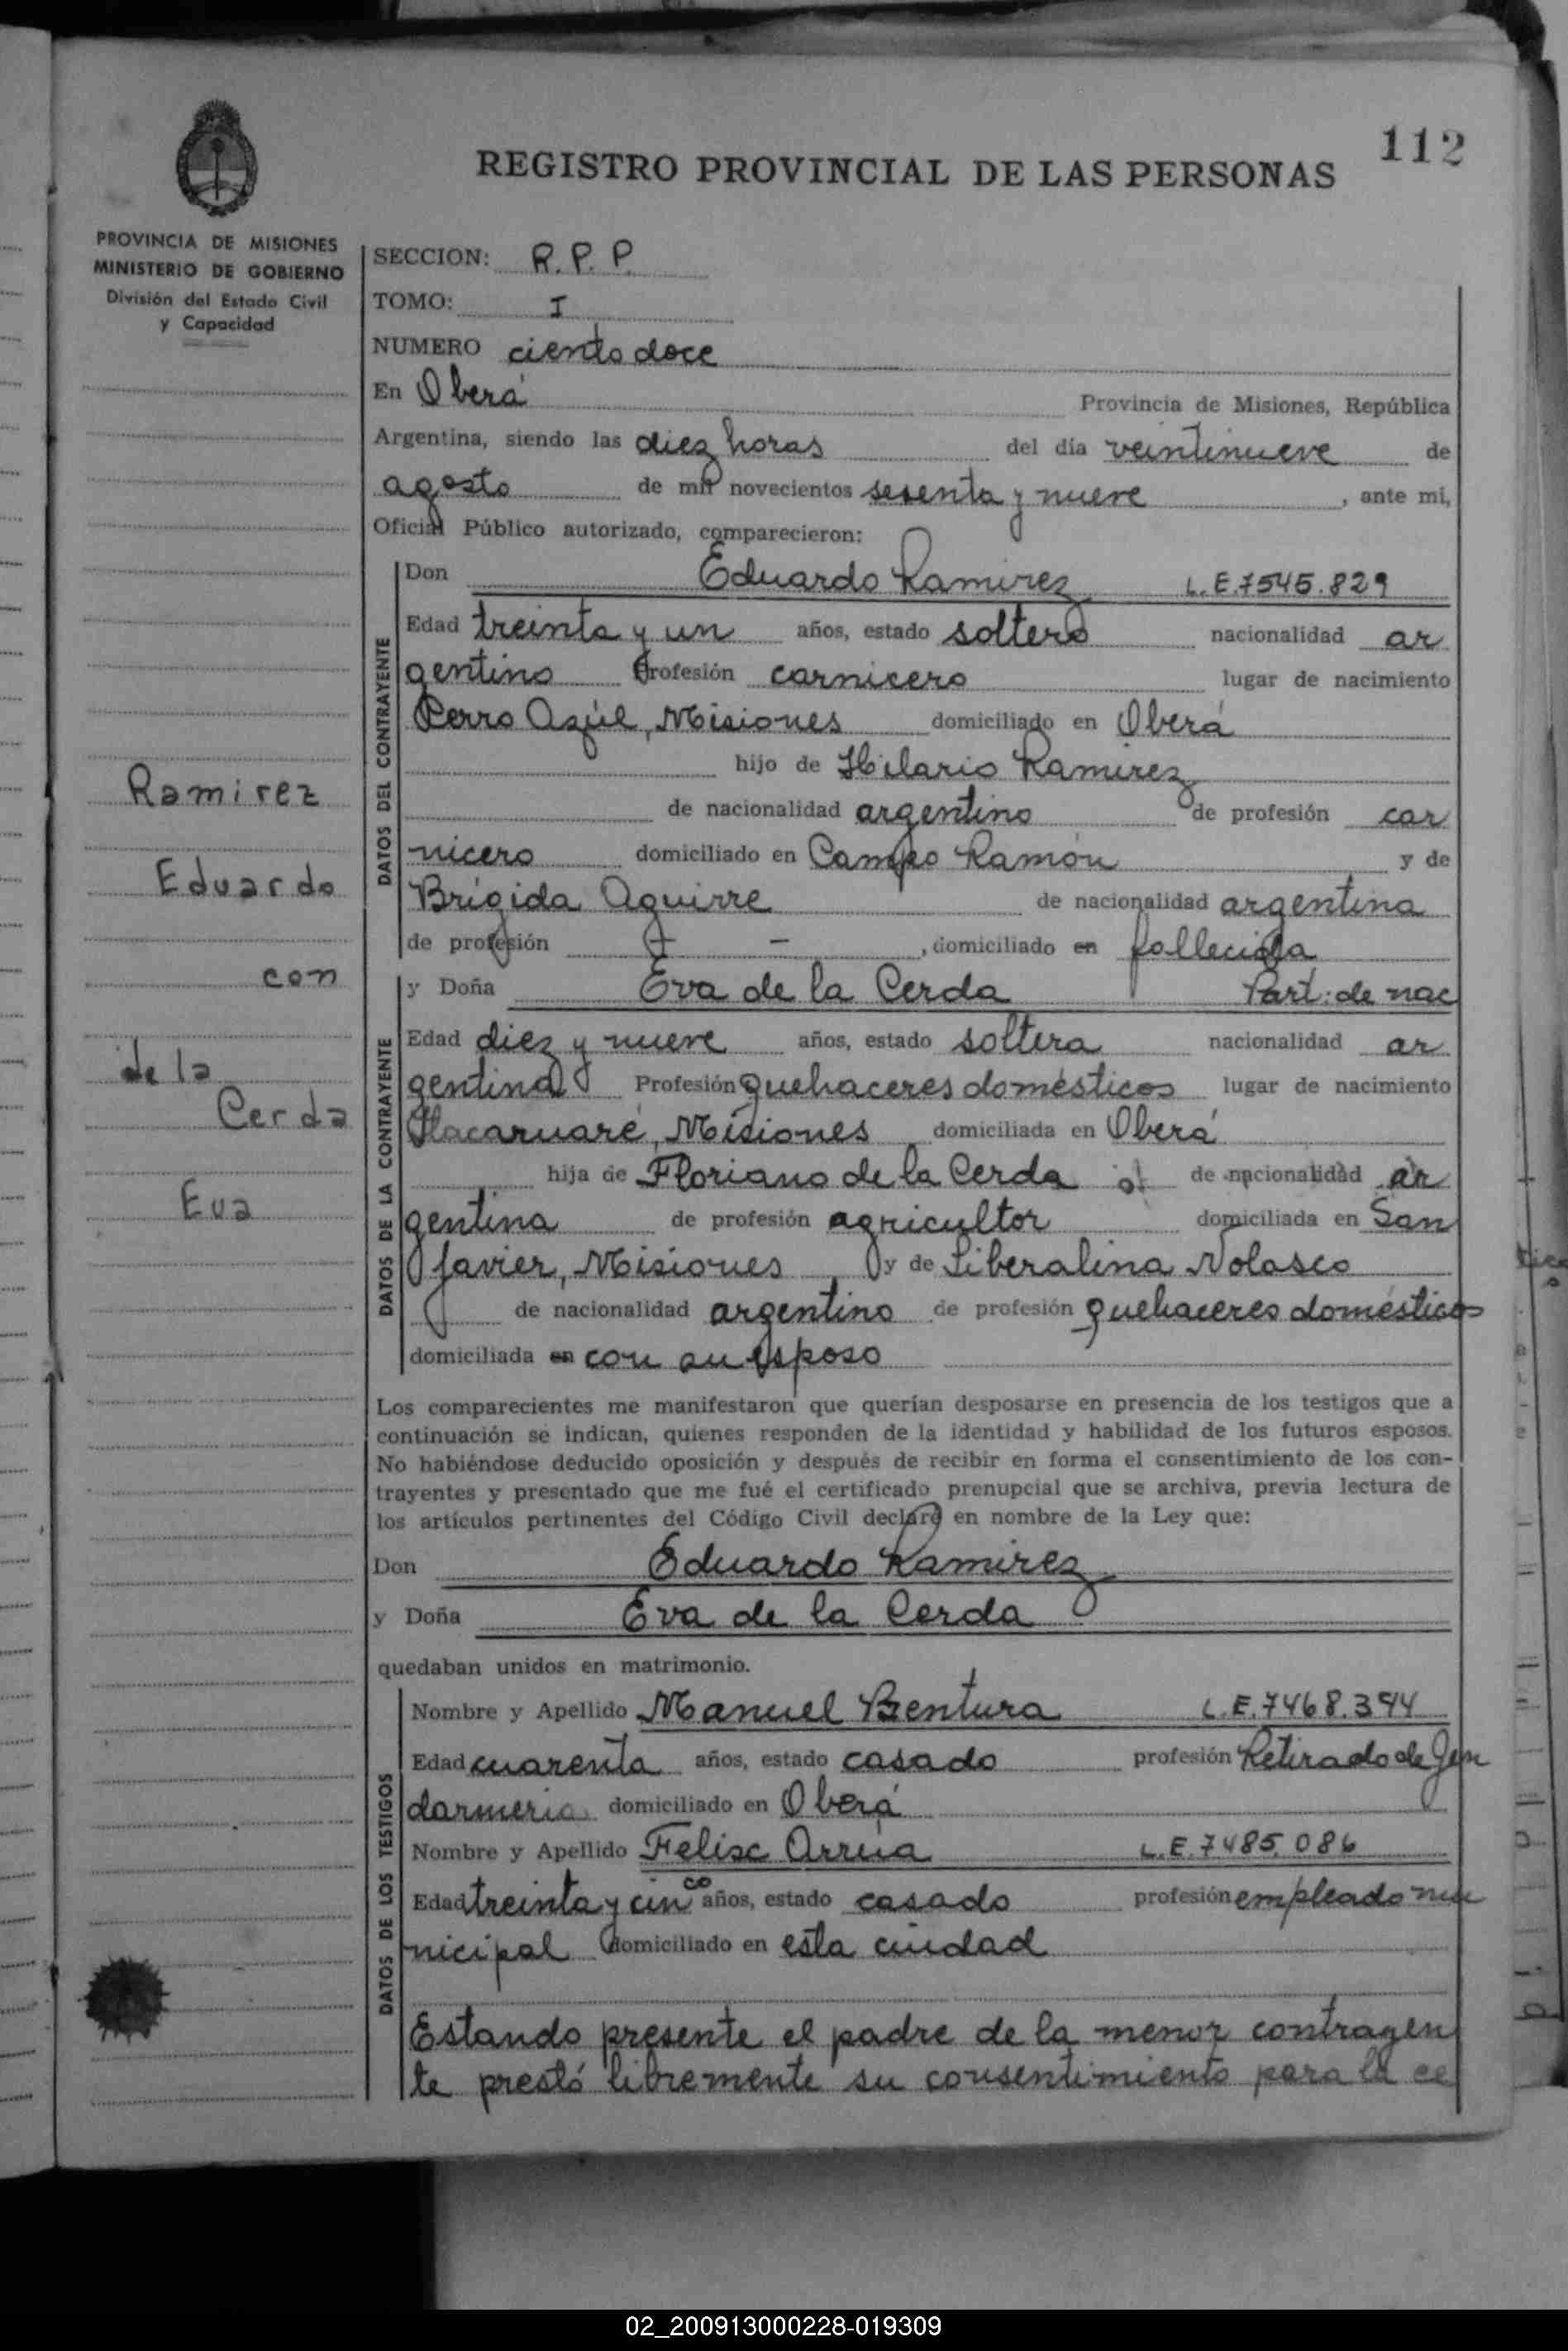 112
REGISTRO PROVINCIAL DE LAS PERSONAS
PROVINCIA DE MISIONES
MINISTERIO DE GOBIERNO
División del Estado Civil
y Capacidad
SECCION: R. P. P.
TOMO: I
NUMERO ciento doce
En Oberá Provincia de Misiones, República
Argentina, siendo las diez horas del día veintinueve de
agosto de mil novecientos sesenta y nueve, ante mi,
Oficial Público autorizado, comparecieron:
DATOS DEL CONTRAYENTE
Don Eduardo Ramirez L.E.7545.829
Edad treinta y un años, estado soltero nacionalidad ar
gentino Profesión carnicero lugar de nacimiento
Cerro Azúl, Misiones domiciliado en Oberá
hijo de Hilario Ramirez
de nacionalidad argentino de profesión car
nicero domiciliado en Campo Ramón y de
Brígida Aguirre de nacionalidad argentina
de profesión - - , domiciliado en fallecida
DATOS DE LA CONTRAYENTE
y Doña Eva de la Cerda Part: de nac
Edad diez y nueve años, estado soltera nacionalidad ar
gentina Profesión quehaceres domésticos lugar de nacimiento
Itacaruaré, Misiones domiciliada en Oberá
hija de Floriano de la Cerda de nacionalidad ar
gentina de profesión agricultor domiciliada en San
Javier, Misiones y de Liberalina Nolasco
de nacionalidad argentino de profesión quehaceres domésticos
domiciliada en con su esposo
Ramirez
Eduardo
con
de la
Cerda
Eva
Los comparecientes me manifestaron que querían desposarse en presencia de los testigos que a
continuación se indican, quienes responden de la identidad y habilidad de los futuros esposos.
No habiéndose deducido oposición y después de recibir en forma el consentimiento de los con-
trayentes y presentado que me fué el certificado prenupcial que se archiva, previa lectura de
los artículos pertinentes del Código Civil declaré en nombre de la Ley que:
Don Eduardo Ramirez
y Doña Eva de la Cerda
quedaban unidos en matrimonio.
DATOS DE LOS TESTIGOS
Nombre y Apellido Manuel Bentura L.E.7468.394
Edad cuarenta años, estado casado profesión Retirado de Gen
darmeria domiciliado en Oberá
Nombre y Apellido Felisc Arrúa L.E.7485.086
Edad treinta y cinco años, estado casado profesión empleado mu
nicipal domiciliado en esta ciudad
Estando presente el padre de la menor contrayen
te prestó libremente su consentimiento para la ce
02_200913000228-019309